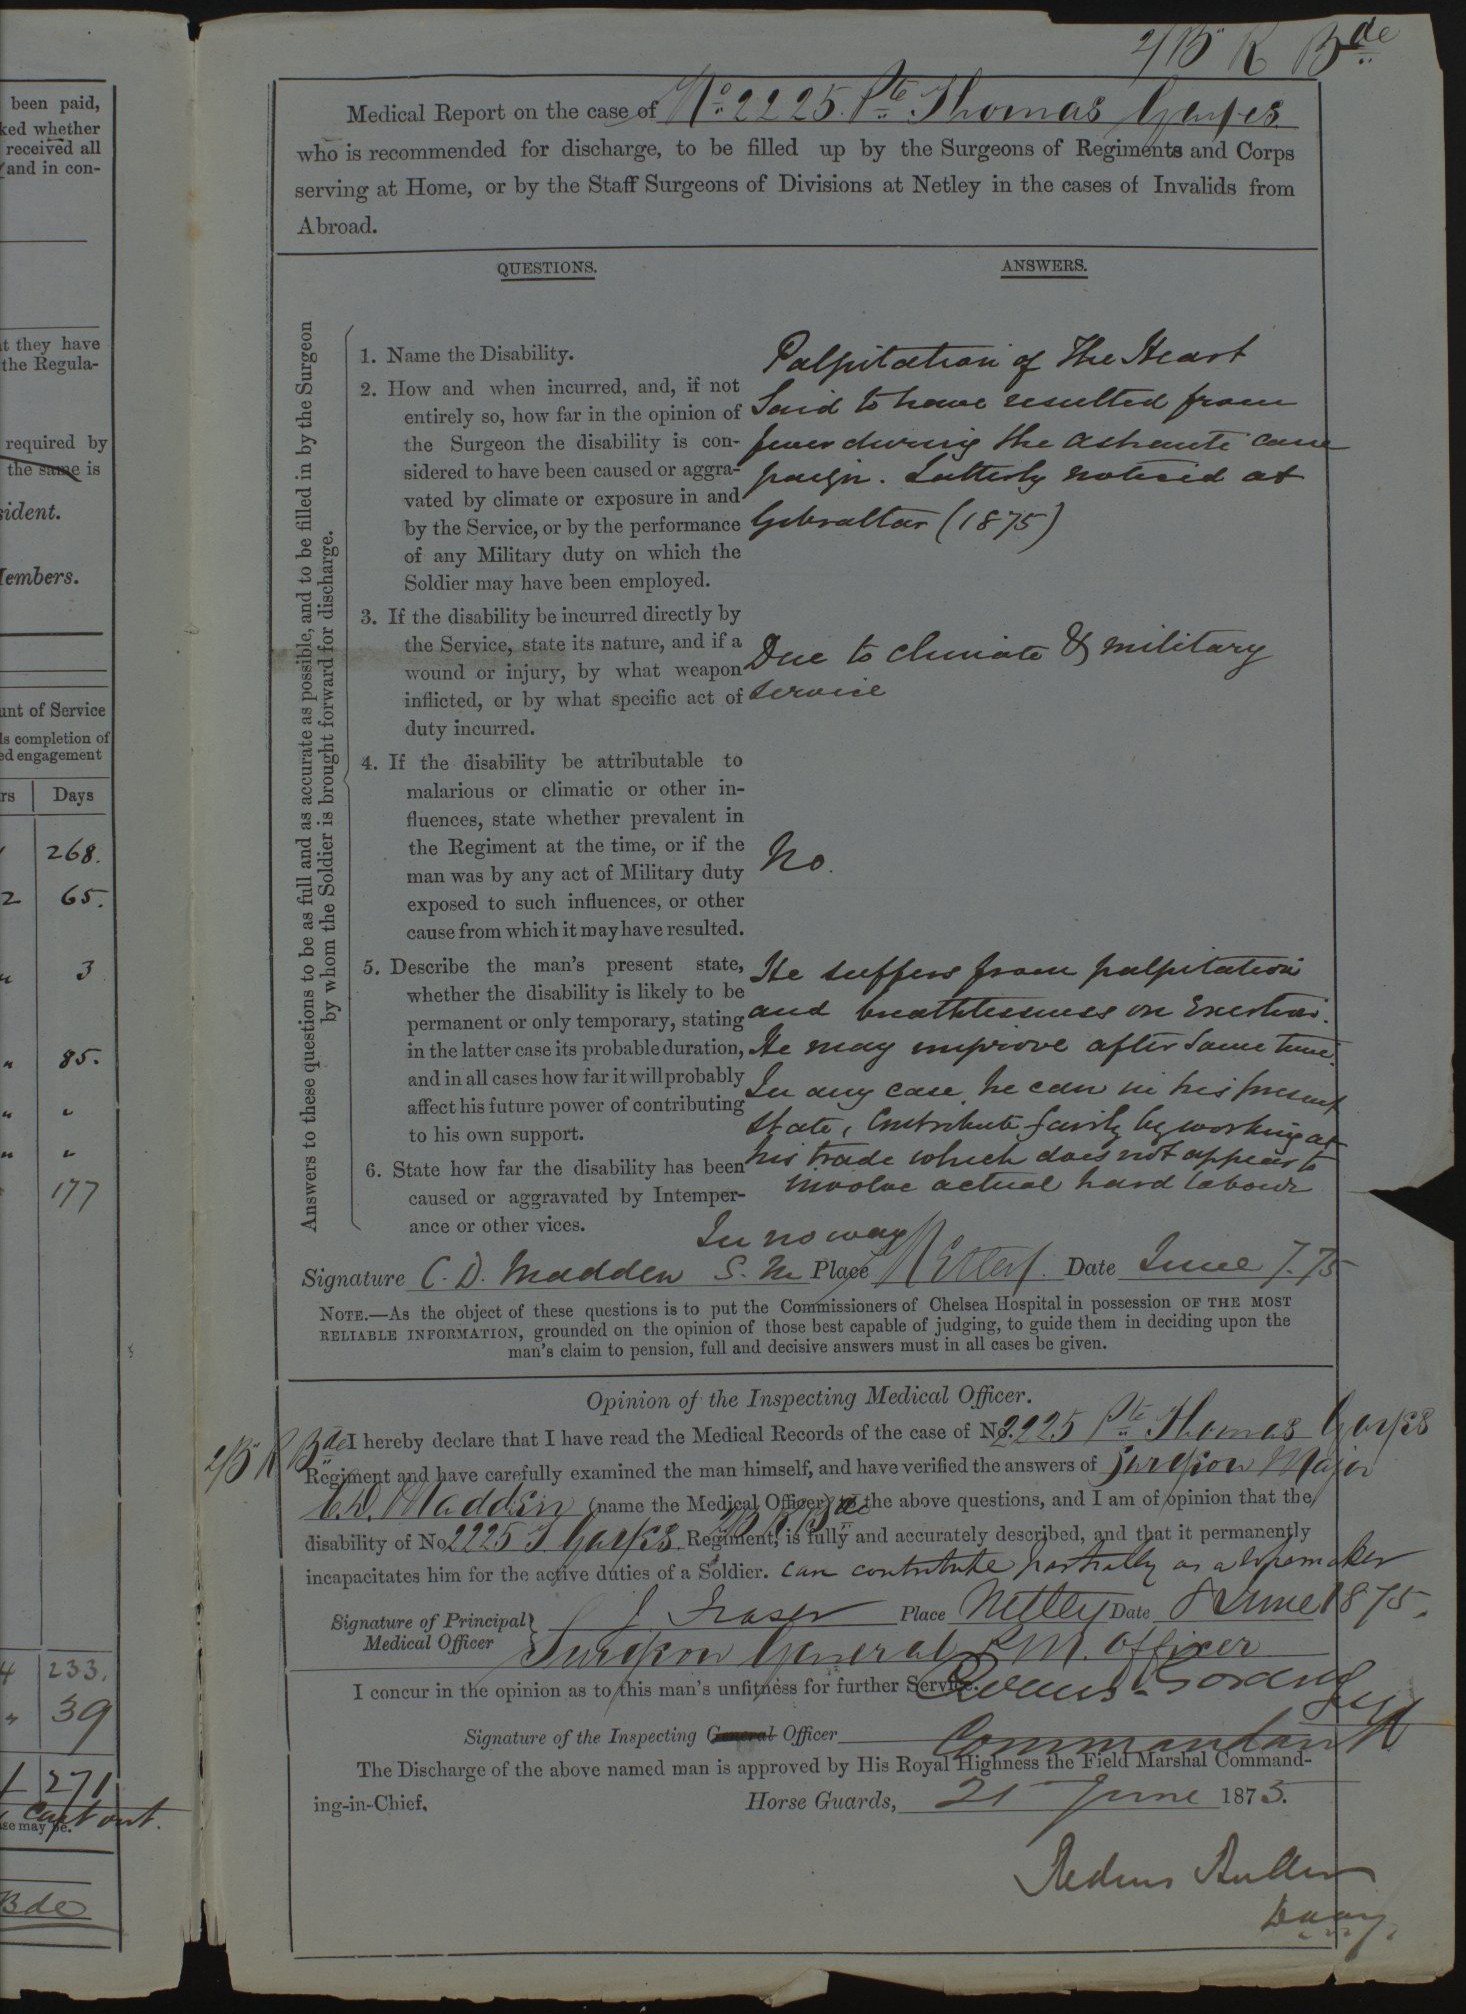 been paid,
ked whether
received all
and in con-
at they have
the Regula-
required by
the same is
sident.
Members.
unt of Service
ls completion of
ed engagement
rs Days
268.
2 65.
" 3
" 85.
" "
" "
177
4 233.
" 39
1 271
Bde
2/B R Bde
Medical Report on the case of No 2225. Pte Thomas
who is recommended for discharge, to be filled up by the Surgeons of Regiments and Corps
serving at Home, or by the Staff Surgeons of Divisions at Netley in the cases of Invalids from
Abroad.
QUESTIONS. ANSWERS.
Answers to these questions to be as full and as accurate as possible, and to be filled in by the Surgeon
by whom the Soldier is brought forward for discharge.
1. Name the Disability.
Palpitation of the Heart
2. How and when incurred, and, if not
entirely so, how far in the opinion of
the Surgeon the disability is con-
sidered to have been caused or aggra-
vated by climate or exposure in and
by the Service, or by the performance
of any Military duty on which the
Soldier may have been employed.
Said to have resulted from
fever during the Ashanti cam
paign. Latterly noticed at
Gibraltar (1875)
3. If the disability be incurred directly by
the Service, state its nature, and if a
wound or injury, by what weapon
inflicted, or by what specific act of
duty incurred.
Due to climate & military
service
4. If the disability be attributable to
malarious or climatic or other in-
fluences, state whether prevalent in
the Regiment at the time, or if the
man was by any act of Military duty
exposed to such influences, or other
cause from which it may have resulted.
No.
5. Describe the man's present state,
whether the disability is likely to be
permanent or only temporary, stating
in the latter case its probable duration,
and in all cases how far it will probably
affect his future power of contributing
to his own support.
He suffers from palpitation
and breathlessness on Exertion.
He may improve after some time.
In any case, he can in his present
state, Contribute fairly by working at
his trade which does not appear to
involve actual hard labour
6. State how far the disability has been
caused or aggravated by Intemper-
ance or other vices.
In no way
Signature C. D. Madden S. M Place Netley. Date June 7. 75
NOTE.—As the object of these questions is to put the Commissioners of Chelsea Hospital in possession OF THE MOST
RELIABLE INFORMATION, grounded on the opinion of those best capable of judging, to guide them in deciding upon the
man's claim to pension, full and decisive answers must in all cases be given.
Opinion of the Inspecting Medical Officer.
I hereby declare that I have read the Medical Records of the case of No. 2225 Pte Thomas
2/B R Bde Regiment and have carefully examined the man himself, and have verified the answers of Surgeon Major
C. D. Madden (name the Medical Officer) to the above questions, and I am of opinion that the
disability of No 2225 T 2/B R Bde Regiment, is fully and accurately described, and that it permanently
incapacitates him for the active duties of a Soldier. can contribute partially as a
Signature of Principal Medical Officer J Fraser Place Netley Date 8 June 1875.
Surgeon General P. M. Officer
I concur in the opinion as to this man's unfitness for further Service.
Signature of the Inspecting General Officer
Commandant
The Discharge of the above named man is approved by His Royal Highness the Field Marshal Command-
ing-in-Chief,
Horse Guards, 21 June 1875.
Redvers Buller